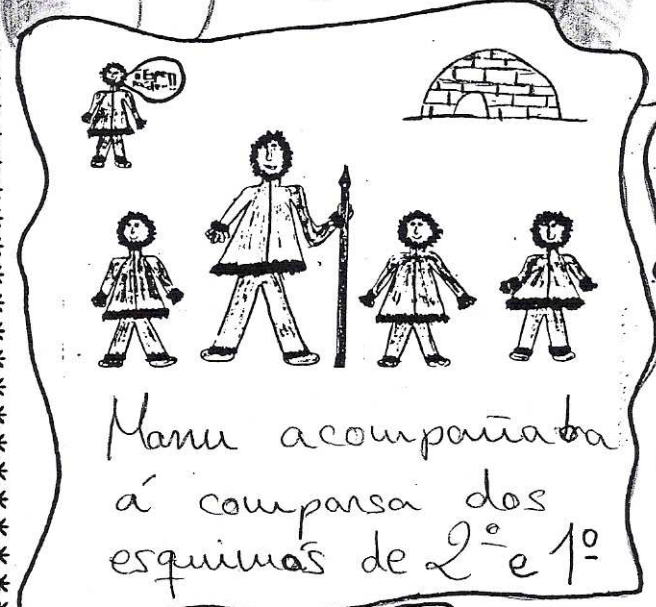 ¡¡Espe
rade!!
Manu acompañaba
á comparsa dos
esquimós de 2º e 1º